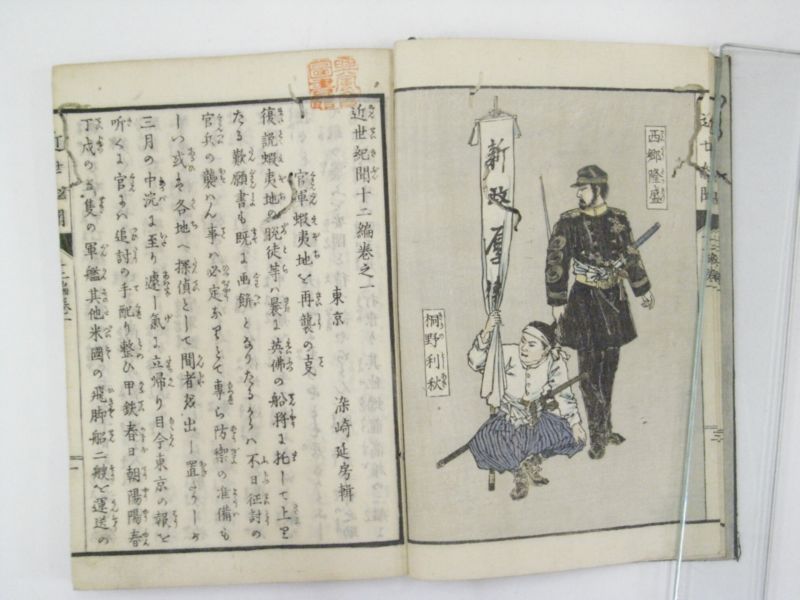 西郷隆盛
桐野利秋
新政厚
近世紀聞十二編巻之一
東京 染崎延房輯
官軍蝦夷地を再襲の支
復説蝦夷地の脱徒等ハ曩に英佛の船将に托して上り
たる歎願書も既に画餅となりたるからハ不日征討の
官兵の襲はん事ハ必定なりとて専ら防禦の准備も
しつ或ハ各地へ探偵として間者を出し置しが
三月の中浣に至り遽し氣に立帰り目今東京の報を
听くに官にハ追討の手配り整ひ甲鉄春日朝陽陽春
丁戌の五隻の軍艦其他米國の飛脚舩二艘を運送の
近世紀聞
十二編巻一